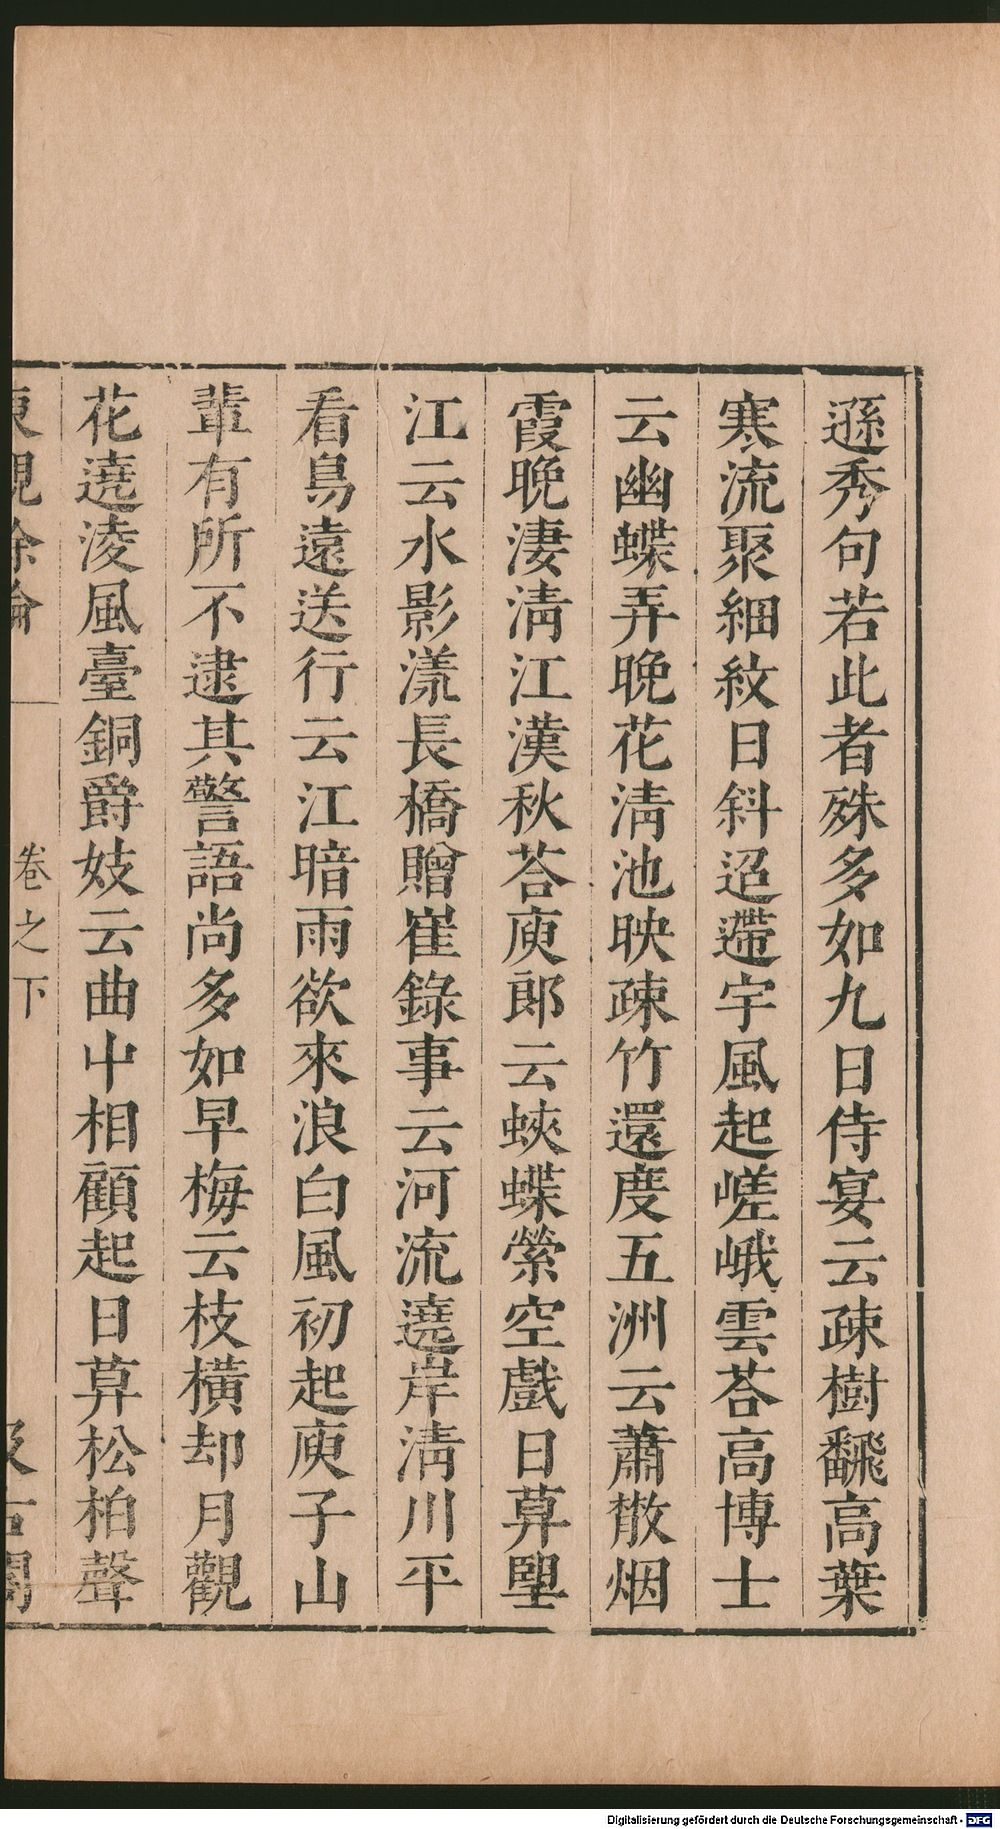 遜秀句若此者殊多如九日侍宴云疎樹飜高葉
寒流聚細紋日斜迢遰宇風起嵯峨雲荅高博士
云幽蝶弄晚花淸池映疎竹還度五洲云蕭散烟
霞晚淒淸江漢秋荅庾郎云蛺蝶縈空戲日暮望
江云水影漾長橋贈崔錄事云河流遶岸淸川平
看鳥遠送行云江暗雨欲來浪白風初起庾子山
輩有所不逮其警語尚多如早梅云枝橫却月觀
花遶淩風臺銅爵妓云曲中相顧起日暮松柏聲
東觀餘論
卷之下
汲古閣
Digitalisierung gefördert durch die Deutsche Forschungsgemeinschaft - DFG